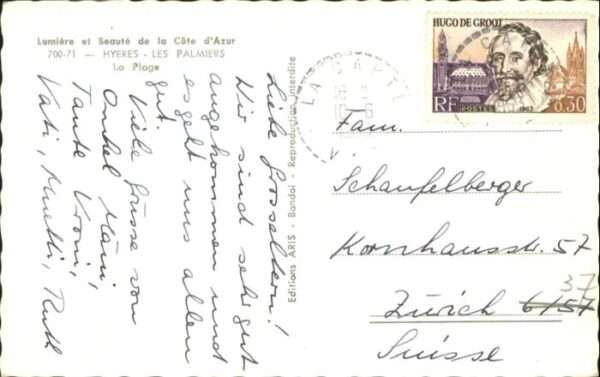 Lumière et Seauté de la Côte d'Azur
700-71 — HYERES - LES PALMIERS
La Plage
Liebe Grosseltern!
Wir sind sehr gut
angekommen und
es geht uns allen
gut.
Viele Grüsse von
Onkel Hani,
Tante Vroni,
Vati, Muetti, Ruth
Editions ARIS - Bandol - Reproduction interdite
HUGO DE GROOT
RF
POSTES
0,30
LA CAPTE
Fam.
Schaufelberger
Kornhausstr. 57
37
Zürich 6/57
Suisse